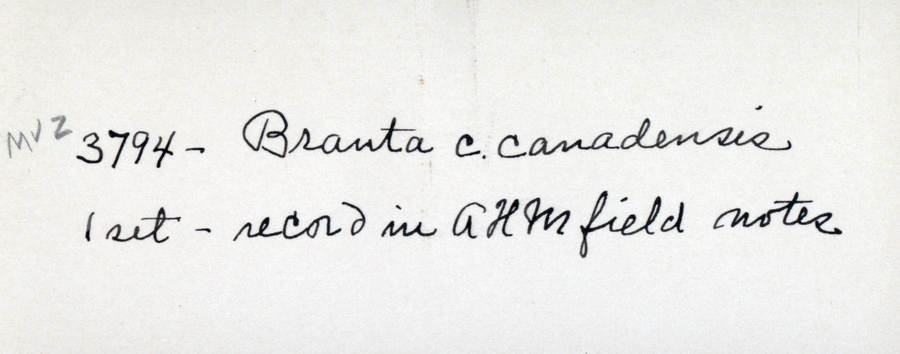 MVZ 3794 - Branta c. canadensis
1 set - record in AHM field notes